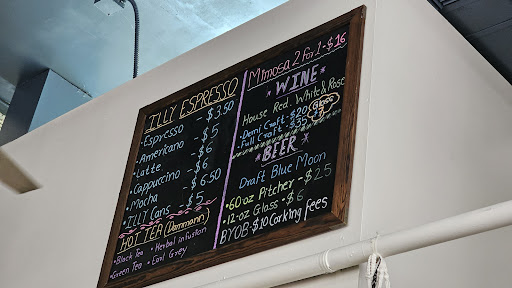 ILLY ESPRESSO
• Espresso - $3.50
• Americano - $5
• Latte - $5
• Cappuccino - $6
• Mocha - $6.50
• ILLY Cans - $5
HOT TEA (Dammann)
• Black Tea • Herbal infusion
• Green Tea • Earl Grey
Mimosa 2 for 1 - $16
* WINE *
House Red, White & Rose
- Demi Craft - $20
- Full Craft - $35
Glass
* BEER *
Draft Blue Moon
• 60 oz Pitcher - $25
• 12-oz Glass - $6
BYOB - $10 Corking Fees